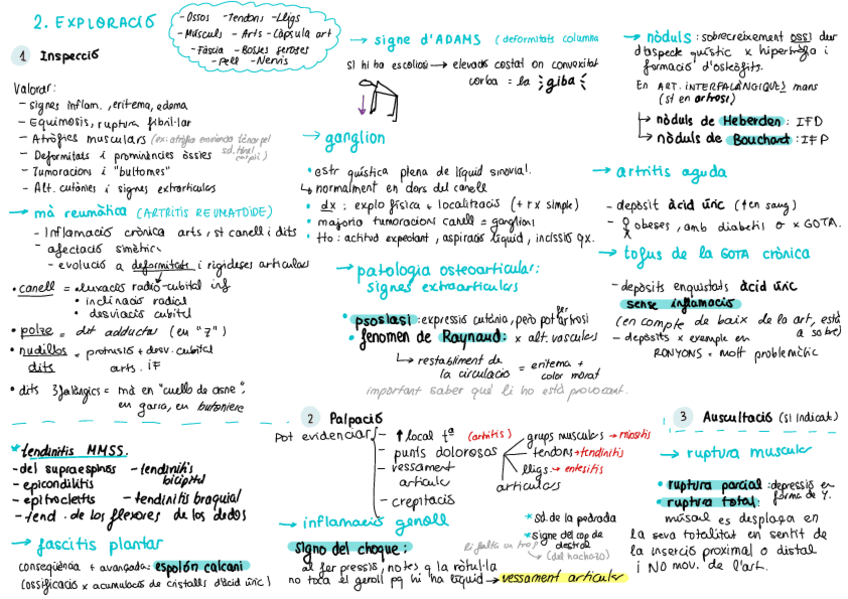 2. EXPLORACIÓ
- Ossos - Tendons - Lligs
- Músculs - Arts - Càpsula art
- Fàscia - Bosses seroses
- Pell - Nervis
1 Inspecció
Valorar:
- signes inflam., eritema, edema
- Equimosis, ruptura fibril·lar
- Atròfies musculars (ex: atròfia eminència tènar pel sd. túnel carpià)
- Deformitats i prominències òssies
- Tumoracions i "bultomes"
- Alt. cutànies i signes extrarticulars
→ mà reumàtica (ARTRITIS REUMATOIDE)
- Inflamació crònica arts, st canell i dits
- afectació simètrica
- evolució a deformitats i rigideses articulars
• canell = luxació radio-cubital inf
• inclinació radial
• desviació cubital
• polze = def adductus (en "Z")
• nudillos = protusió + desv. cubital
dits arts. IF
• dits 3 falàngics = mà en "cuello de cisne",
en garra, en butoniere
* tendinitis MMSS.
- del supraespinós - tendinitis bicipital
- epicondilitis
- epitrocleitis - tendinitis braquial
- tend. de los flexores de los dedos
→ fascitis plantar
conseqüència + avançada: espolón calcani
(ossificació x acumulació de cristalls d'àcid úric)
→ signe d'ADAMS (deformitats columna
si hi ha escoliosi → elevació costat on convexitat
corba = la giba
→ ganglion
• estr quística plena de líquid sinovial.
↳ normalment en dors del canell
• dx: explo física + localització (+ rx simple)
• majoria tumoracions canell = ganglions
• tto: actitud expectant, aspiració líquid, incissió qx.
→ patologia osteoarticular:
signes extraarticulars
• psoriasi: expressió cutània, però pot fer artrosi
• fenomen de Raynaud: x alt. vasculars
↳ restabliment de
la circulació = eritema +
color morat
important saber què li ho està provocant.
2 Palpació
Pot evidenciar
- ↑ local tª (artritis)
- punts dolorosos
- vessament articular
- crepitació
grups musculars → miositis
tendons → tendinitis
lligs → entesitis
articulars
→ inflamació genoll
signo del choque:
al fer pressió, notes q la ròtul·la
no toca el genoll pq hi ha líquid → vessament articular
* sd. de la pedrada
* signe del cop de destral
(del hachazo)
→ nòduls: sobrecreixement ossi dur
d'aspecte quístic x hipertròfia i
formació d'osteòfits.
En ART. INTERFALÀNGIQUES mans
(st en artrosi)
↳ nòduls de Heberden: IFD
↳ nòduls de Bouchard: IFP
→ artritis aguda
- depòsit àcid úric (↑ en sang)
- obeses, amb diabetis o x GOTA.
→ tofus de la GOTA crònica
- depòsits enquistats àcid úric
sense inflamació
(en compte de baix de la art, està a sobre)
- depòsits x exemple en
RONYONS = molt problemàtic
3 Auscultació (si indicat)
→ ruptura muscular
• ruptura parcial: depressió en forma de Y.
• ruptura total:
múscul es desplaça en
la seva totalitat en sentit de
la inserció proximal o distal
i NO mov. de l'art.